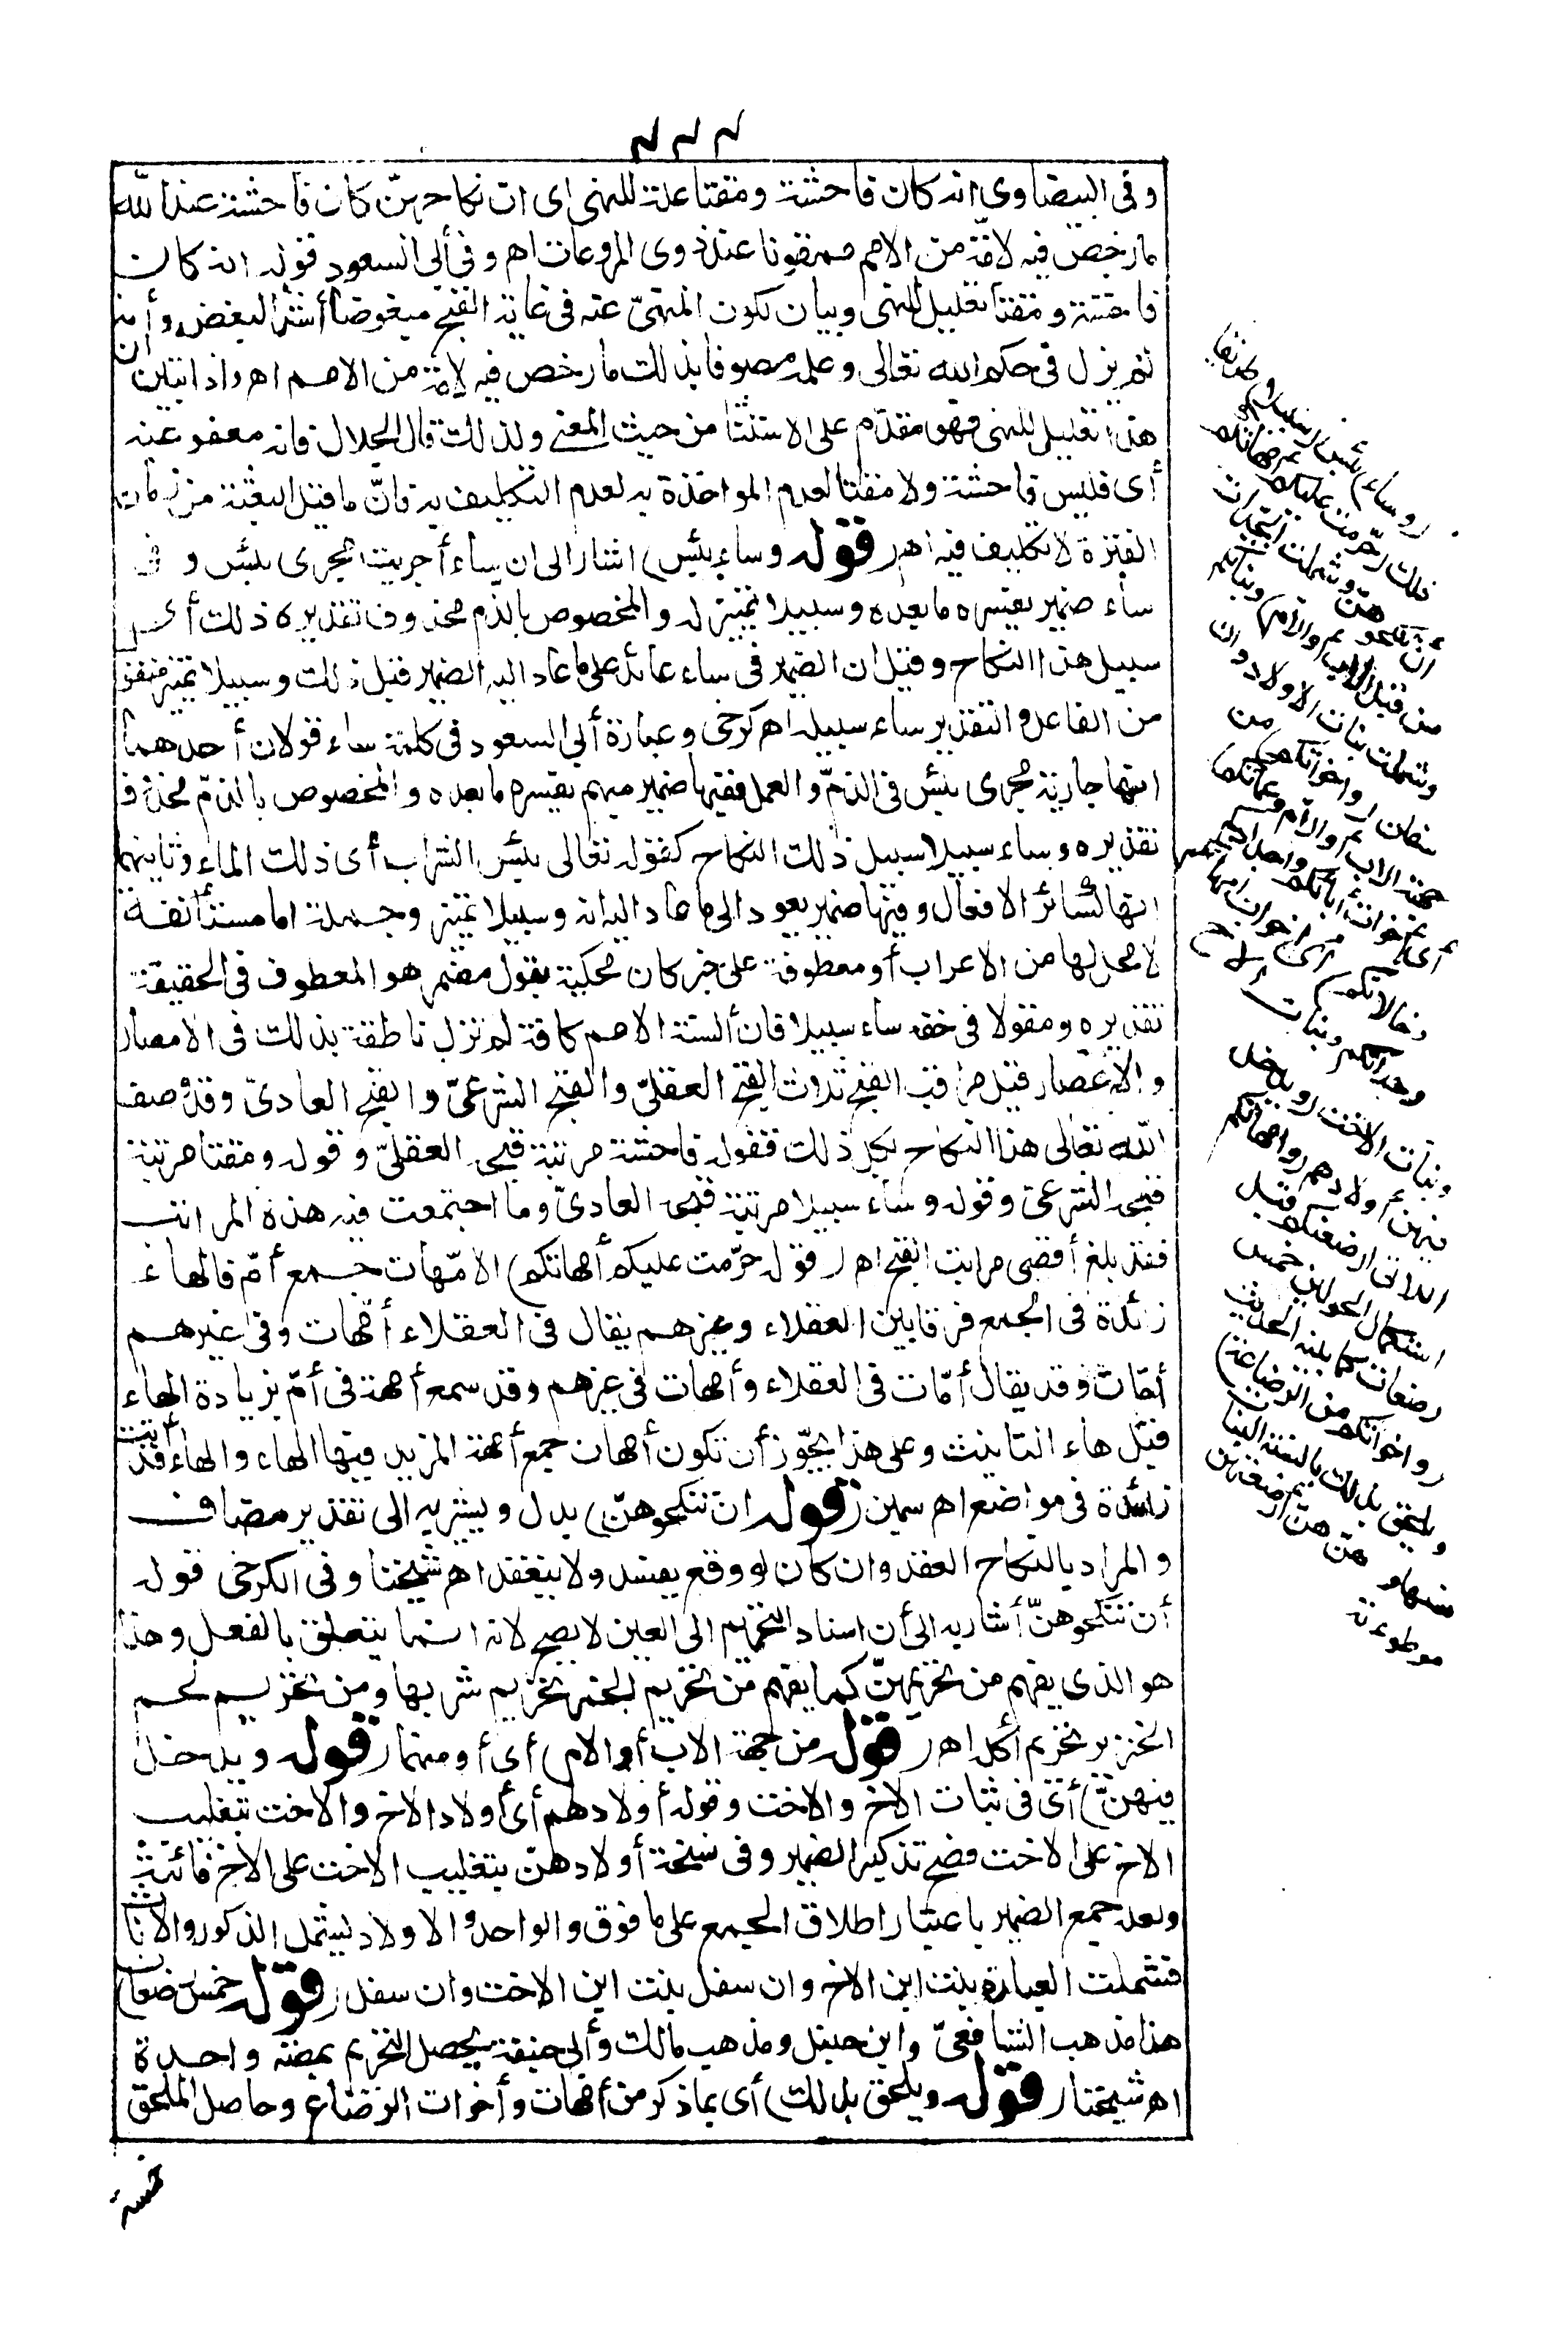 ٢٢٢
وفى البيضاوى انه كان فاحشة ومقتا علة للنهى اى ان نكاحهنّ كان فاحشة عند الله
ما رخص فيه لامّة من الامم ممقوتا عند ذوى المروءات اهـ وفى أبى السعود قوله انه كان
فاحشة ومقتا تعليل للنهى وبيان لكون المنهىّ عنه فى غاية القبح مبغوضا أشدّ البغض وأنه
لم يزل فى حكم الله تعالى وعلمه موصوفا بذلك ما رخص فيه لامّة من الامم اهـ واذا تبين ان
هذا تعليل للنهى فهو مقدّم على الاستثناء من حيث المعنى ولذلك قال الجلال فانه معفو عنه
أى فليس فاحشة ولا مقتا لعدم المواخذة به لعدم التكليف به فانّ ما قبل البعثة من زمان
الفترة لا تكليف فيه اهـ (قوله وساء بئس) اشار الى ان ساء أجريت مجرى بئس وفى
ساء ضمير يفسره ما بعده وسبيلا تمييز له والمخصوص بالذم محذوف تقديره ذلك أى
سبيل هذا النكاح وقيل ان الضمير فى ساء عائد على ما عاد اليه الضمير قبل ذلك وسبيلا تمييز منقول
من الفاعل والتقدير ساء سبيله اهـ كرخى وعبارة أبى السعود فى كلمة ساء قولان أحدهما
انها جارية مجرى بئس فى الذمّ والعمل ففيها ضمير مبهم يفسره ما بعده والمخصوص بالذمّ محذوف
تقديره وساء سبيلا سبيل ذلك النكاح كقوله تعالى بئس الشراب أى ذلك الماء وثانيهما
انها كسائر الافعال وفيها ضمير يعود الى ما عاد اليه انه وسبيلا تمييز وجملة اما مستأنفة
لا محل لها من الاعراب أو معطوفة على خبر كان محكية بقول مضمر هو المعطوف فى الحقيقة
تقديره ومقولا فى حقه ساء سبيلا فان ألسنة الامم كافة لم تزل ناطقة بذلك فى الامصار
والاعصار قيل مراتب القبح ثلاث القبح العقلىّ والقبح الشرعىّ والقبح العادىّ وقد وصف
الله تعالى هذا النكاح بكل ذلك فقوله فاحشة مرتبة قبحه العقلىّ وقوله ومقتا مرتبة
قبحه الشرعىّ وقوله وساء سبيلا مرتبة قبحه العادىّ وما اجتمعت فيه هذه المراتب
فقد بلغ أقصى مراتب القبح اهـ (قوله حرّمت عليكم أمهاتكم) الامّهات جمع أمّ فالهاء
زائدة فى الجمع فرقا بين العقلاء وغيرهم يقال فى العقلاء أمّهات وفى غيرهم
أمّات وقد يقال أمّات فى العقلاء وأمهات فى غيرهم وقد سمع أمهة فى أمّ بزيادة الهاء
قبل هاء التانيث وعلى هذا يجوّز أن تكون أمهات جمع أمهة المزيد فيها الهاء والهاء قد أتت
زائدة فى مواضع اهـ سمين (قوله ان تنكحوهنّ) بدل ويشير به الى تقدير مضاف
والمراد بالنكاح العقد وان كان لو وقع يفسد ولا ينعقد اهـ شيخنا وفى الكرخى قوله
أن تنكحوهنّ أشار به الى أن اسناد التحريم الى العين لا يصح لانه انما يتعلق بالفعل وهذا
هو الذى يفهم من تحريمهنّ كما يفهم من تحريم الخمر تحريم شربها ومن تحريم لحم
الخنزير تحريم أكله اهـ (قوله من جهة الاب أو الام) أى أو منهما (قوله ويدخل
فيهنّ) أى فى بنات الاخ والاخت وقوله أولادهم أى أولاد الاخ والاخت بتغليب
الاخ على الاخت فصح تذكير الضمير وفى نسخة أولادهنّ بتغليب الاخت على الاخ فأنث
وبعد جمع الضمير باعتبار اطلاق الجمع على ما فوق الواحد والاولاد ليشمل الذكور والاناث
فشملت العبارة بنت ابن الاخ وان سفل بنت ابن الاخت وان سفل (قوله خمس رضعات)
هذا مذهب الشافعىّ وابن حنبل ومذهب مالك وأبى حنيفة يحصل التحريم بمصّة واحدة
اهـ شيخنا (قوله ويلحق بذلك) أى بما ذكر من أمّهات وأخوات الرّضاع وحاصل الملحق
خمسة
(وساء) بئس (سبيلا) طريقا
ذلك (حرّمت عليكم أمهاتكم) أن
تنكحوهنّ وشملت الجدّات
من قبل الاب أو الام (وبناتكم)
وشملت بنات الاولاد وان
سفلن (وأخواتكم) من
جهة الاب أو الام (وعماتكم)
أى أخوات آبائكم وأجدادكم
(وخالاتكم) أى أخوات أمهاتكم
وجدّاتكم (وبنات الاخ
وبنات الاخت) ويدخل
فيهن أولادهم (وأمهاتكم
اللاتى أرضعنكم) قبل
استكمال الحولين خمس
رضعات كما بينه الحديث
(وأخواتكم من الرضاعة)
ويلحق بذلك بالسنة البنات
منها وهنّ من أرضعتهن
موطوءته